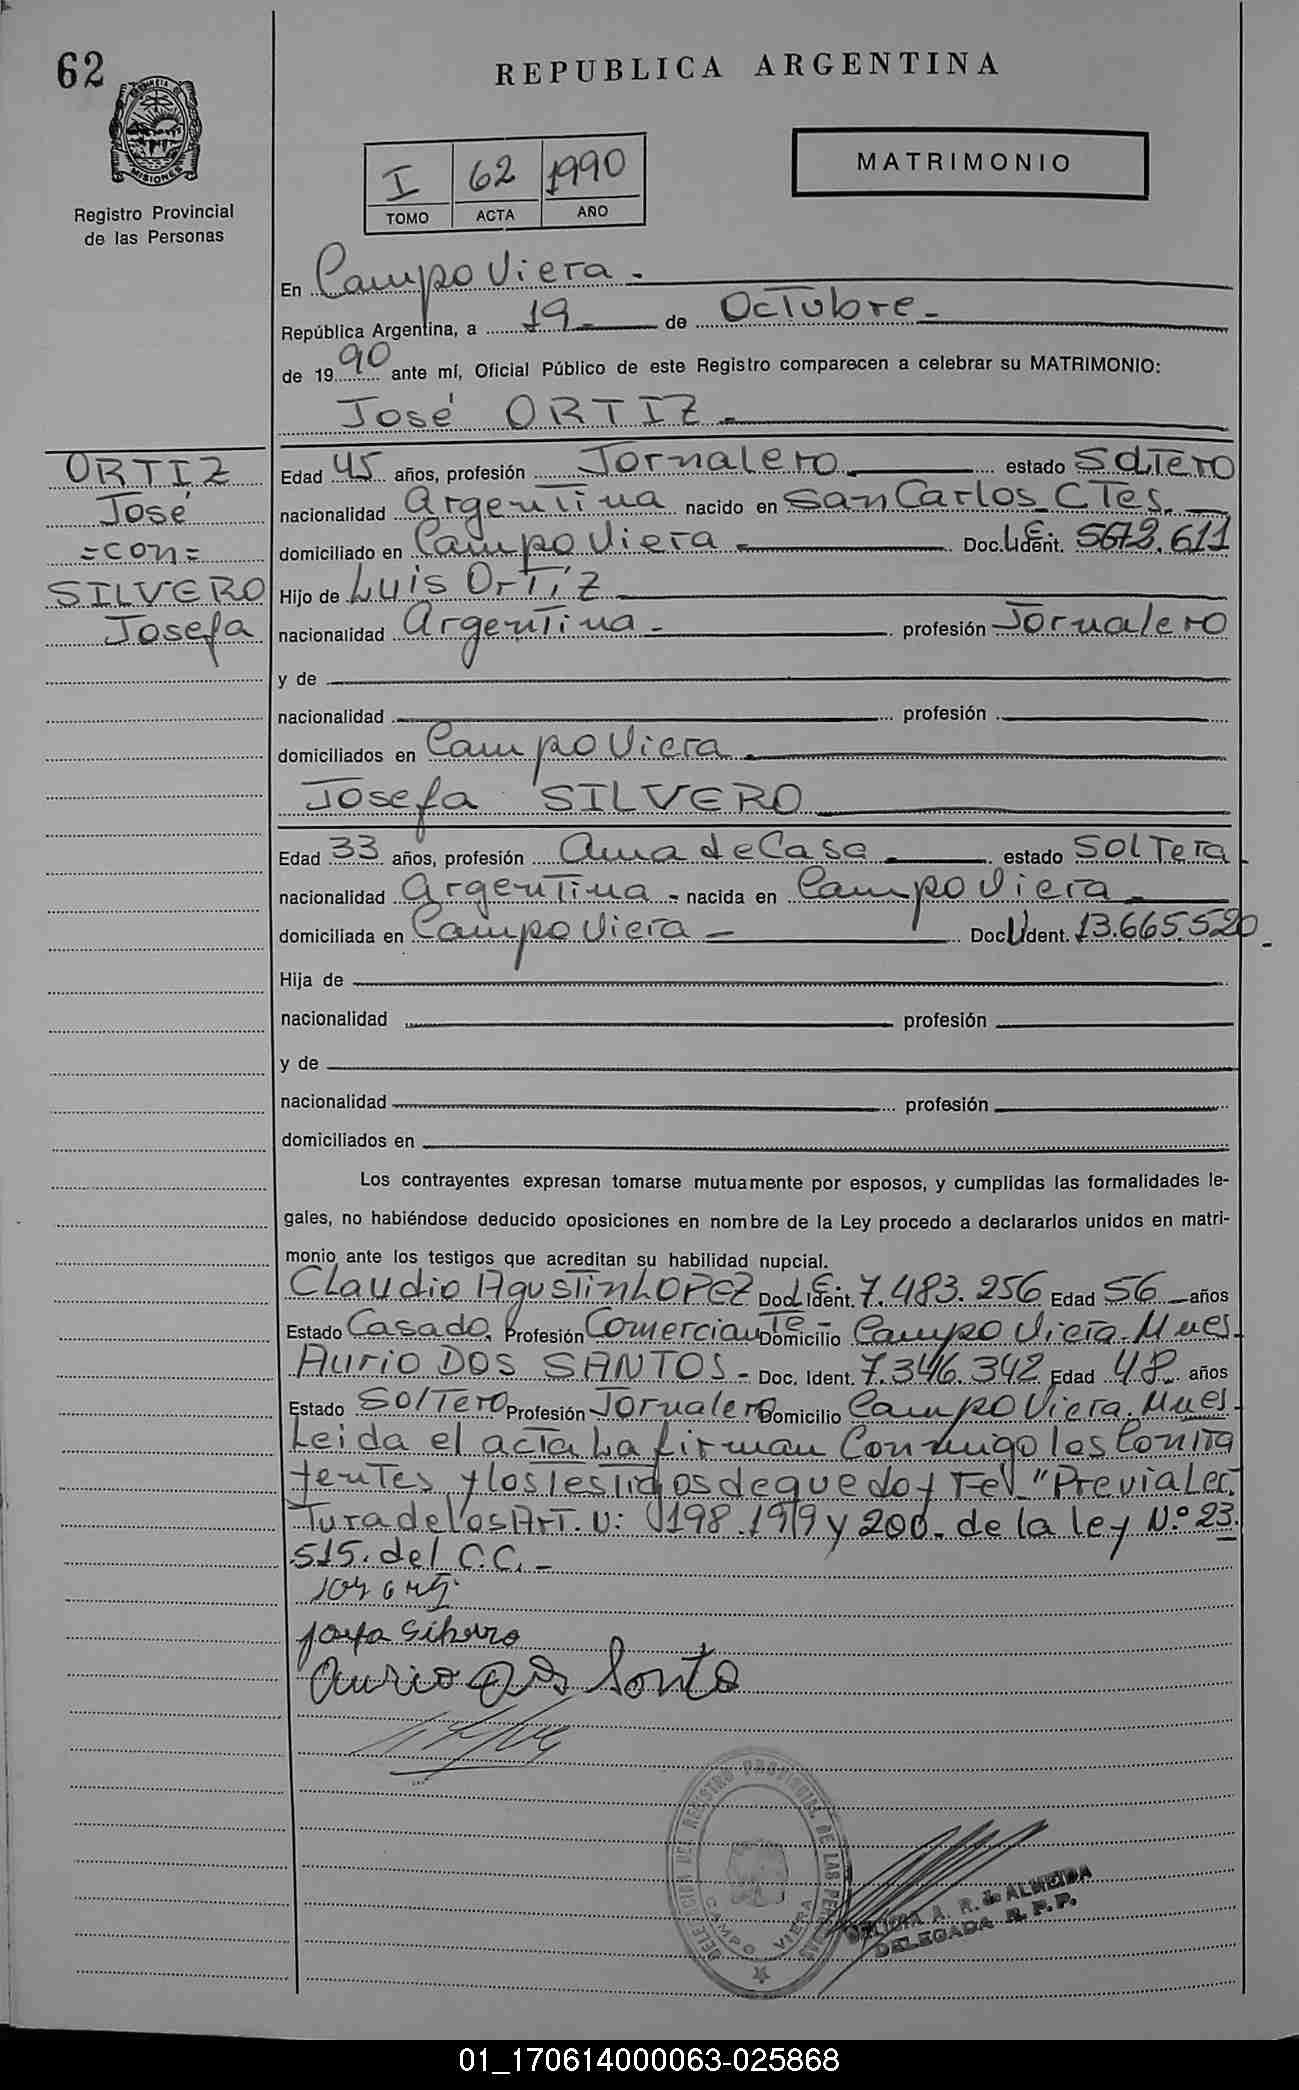 62
REPUBLICA ARGENTINA
MISIONES
Registro Provincial
de las Personas
I 62 1990
TOMO ACTA AÑO
MATRIMONIO
En Campo Viera.-
República Argentina, a 19 de Octubre.-
de 1990 ante mí, Oficial Público de este Registro comparecen a celebrar su MATRIMONIO:
José ORTIZ.-
ORTIZ
José
=con=
SILVERO
Josefa
Edad 45 años, profesión Jornalero estado Soltero
nacionalidad Argentina nacido en San Carlos Ctes.
domiciliado en Campo Viera Doc. Ident. L.E. 5672.611
Hijo de Luis Ortiz
nacionalidad Argentina.- profesión Jornalero
y de
nacionalidad profesión
domiciliados en Campo Viera
Josefa SILVERO
Edad 33 años, profesión Ama de Casa estado Soltera
nacionalidad Argentina - nacida en Campo Viera
domiciliada en Campo Viera - Doc. Ident. 13.665.520.-
Hija de
nacionalidad profesión
y de
nacionalidad profesión
domiciliados en
Los contrayentes expresan tomarse mutuamente por esposos, y cumplidas las formalidades le-
gales, no habiéndose deducido oposiciones en nombre de la Ley procedo a declararlos unidos en matri-
monio ante los testigos que acreditan su habilidad nupcial.
Claudio Agustin LOPEZ Doc. Ident. L.E. 7.483.256 Edad 56 años
Estado Casado. Profesión Comerciante Domicilio Campo Viera. Mnes.
Aurio DOS SANTOS - Doc. Ident. 7.346.342 Edad 48 años
Estado Soltero Profesión Jornalero Domicilio Campo Viera. Mnes.
Leida el acta La firman Conmigo los Contra
yentes y los Testigos de que doy Fe. "Previa Lec.
tura de los Art. N: 198.199 y 200. de la ley N.° 23.
515. del C.C.-
Josefa Silvero
Aurio Dos Santo
DELEGACION DEL REGISTRO PROVINCIAL DE LAS PERSONAS
CAMPO VIERA
A. R. de ALMEIDA
DELEGADA R. P. P.
01_170614000063-025868